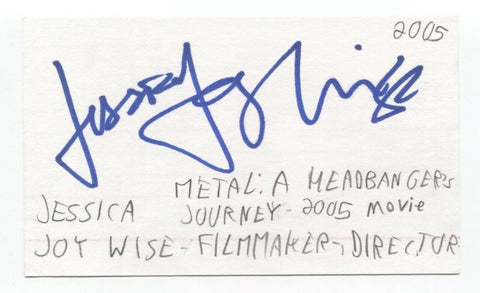 2005
Jessica Joy Wise
METAL: A HEADBANGER'S
JESSICA JOURNEY - 2005 MOVIE
JOY WISE - FILMMAKER - DIRECTOR